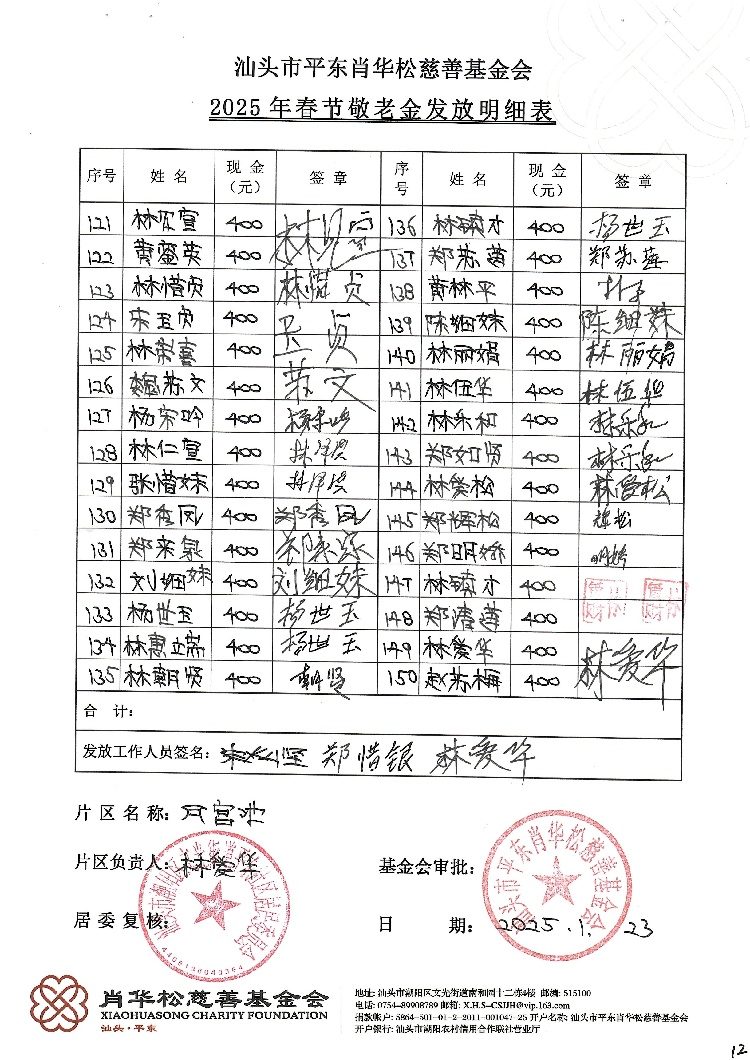 汕头市平东肖华松慈善基金会
2025年春节敬老金发放明细表
序号 姓名 现金（元） 签章 序号 姓名 现金（元） 签章
121 林 宣 400 136 林镇才 400 杨世玉
122 黄 英 400 137 郑苏 400 郑苏
123 林惜贞 400 林惜贞 138 黄林平 400
124 宋玉贞 400 玉贞 139 陈细妹 400 陈细妹
125 林 喜 400 140 林丽娟 400 林丽娟
126 魏 文 400 文 141 林伍华 400 林伍华
127 杨宋吟 400 142 林乐和 400 林乐和
128 林仁宣 400 143 郑如贤 400 林乐和
129 张惜妹 400 144 林爱松 400 林爱松
130 郑秀凤 400 郑秀凤 145 郑辉松 400 辉松
131 郑 400 146 郑明娇 400 明娇
132 刘细妹 400 刘细妹 147 林镇才 400
133 杨世玉 400 杨世玉 148 郑 400
134 林惠 400 杨世玉 149 林爱华 400 林爱华
135 林朝贤 400 朝贤 150 赵苏梅 400
合 计：
发放工作人员签名： 郑惜银 林爱华
片区名称：
片区负责人：林爱华 基金会审批：
汕头市平东肖华松慈善基金会
居委复核： 日 期：2025.1.23
肖华松慈善基金会
XIAOHUASONG CHARITY FOUNDATION
汕头·平东
地址: 汕头市潮阳区文光街道南和园十二栋4楼 邮编: 515100
电话: 0754-89908789 邮箱: X.H.S-CSJJH@vip.163.com
捐款账户: 5864-501-01-2-2011-001047-25 开户名称: 汕头市平东肖华松慈善基金会
开户银行: 汕头市潮阳农村信用合作联社营业厅
12